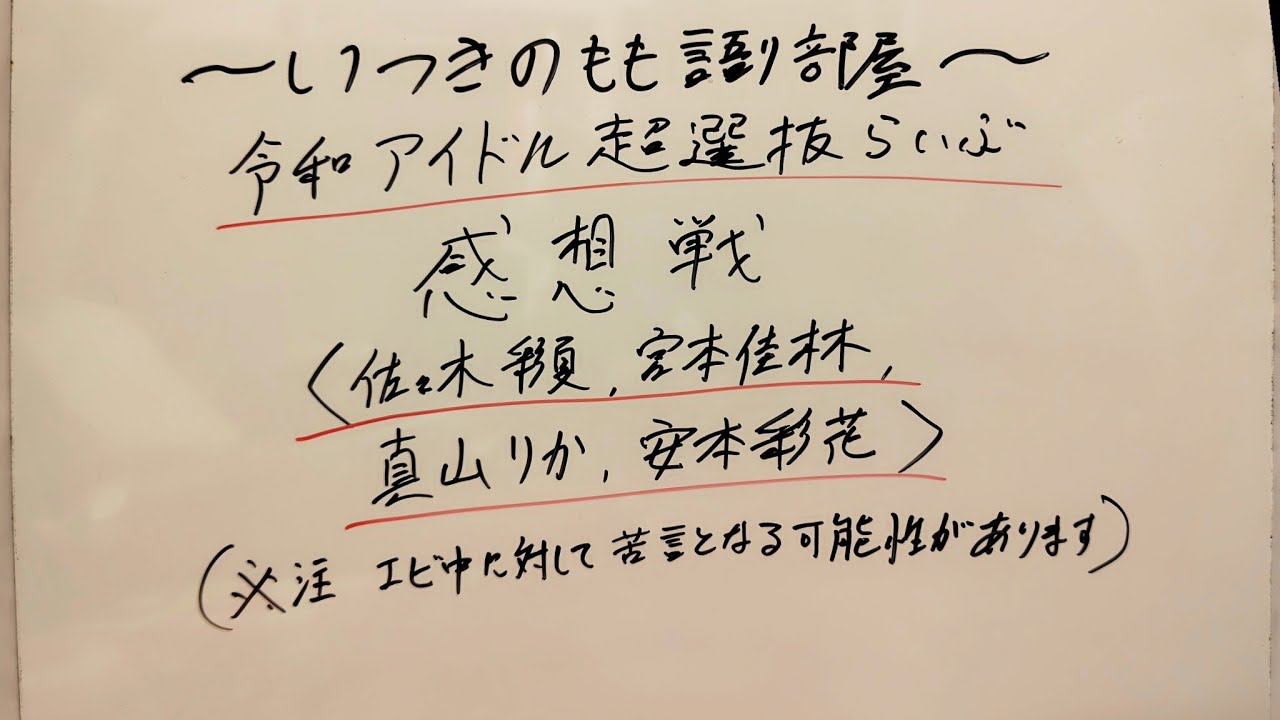 ～いつきのもも語り部屋～
令和アイドル超選抜らいぶ
感想戦
〈佐々木彩夏,宮本佳林,
真山りか,安本彩花〉
(※注 エビ中に対して苦言となる可能性があります)